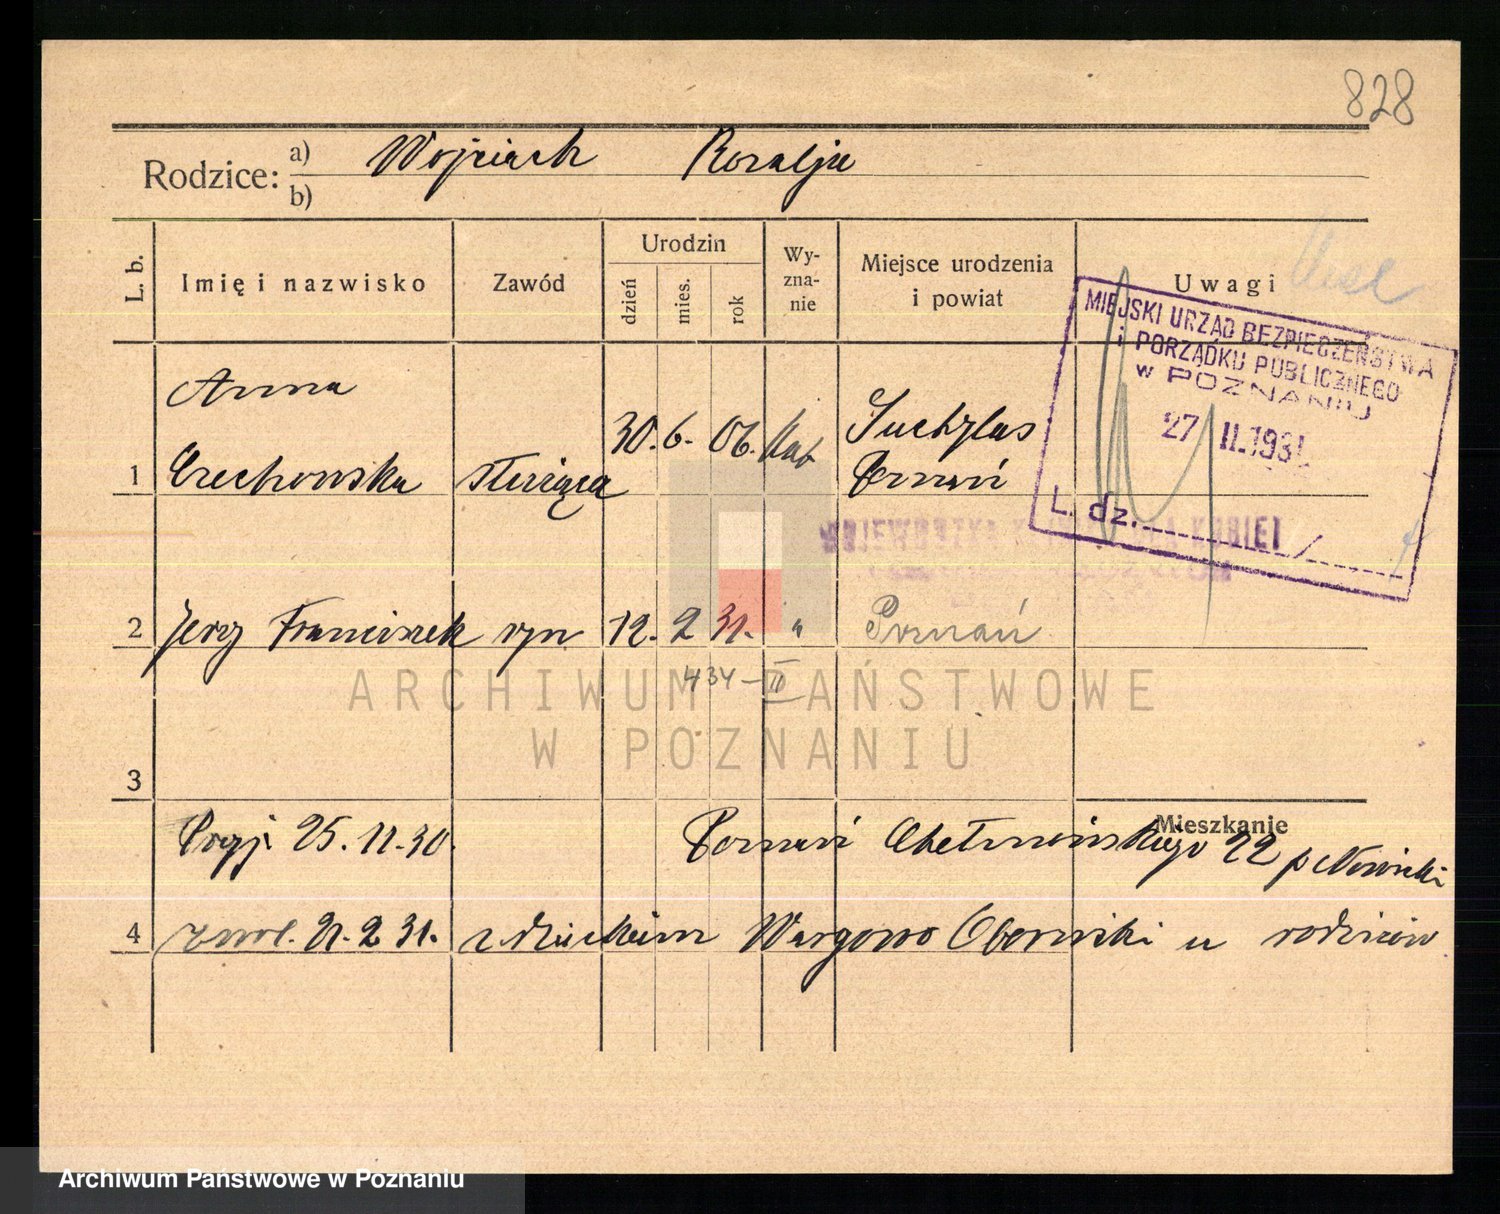 828
Rodzice: a) Wojciech Rozalja
b)
L. b. Imię i nazwisko Zawód Urodzin dzień mies. rok Wy-zna-nie Miejsce urodzenia i powiat Uwagi
MIEJSKI URZĄD BEZPIECZEŃSTWA
i PORZĄDKU PUBLICZNEGO
w POZNANIU
27 II. 1931
L. dz.
Anna
1 służąca 30. 6. 06. Kat Suchylas
Poznań
KOBIET
2 Jerzy Franciszek syn 12. 2 31. " Poznań
434 - II
ARCHIWUM PAŃSTWOWE
W POZNANIU
3
Mieszkanie
Przyj. 25. 11. 30. Poznań Chełmońskiego 22 p Nowicki
4 zwol. 21. 2 31. z dzieckiem Wargowo Oborniki u rodziców
Archiwum Państwowe w Poznaniu